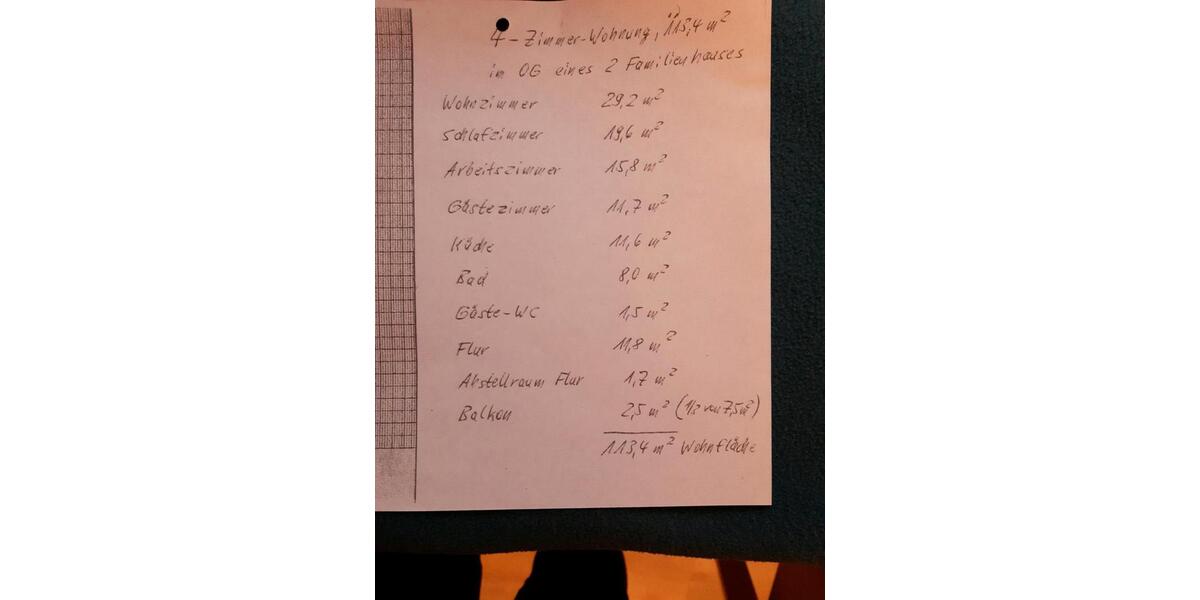 4-Zimmer-Wohnung, 113,4 m²
im OG eines 2 Familienhauses
Wohnzimmer 29,2 m²
Schlafzimmer 19,6 m²
Arbeitszimmer 15,8 m²
Gästezimmer 11,7 m²
Küche 11,6 m²
Bad 8,0 m²
Gäste-WC 1,5 m²
Flur 11,8 m²
Abstellraum Flur 1,7 m²
Balkon 2,5 m² (1/3 von 7,5m²)
113,4 m² Wohnfläche